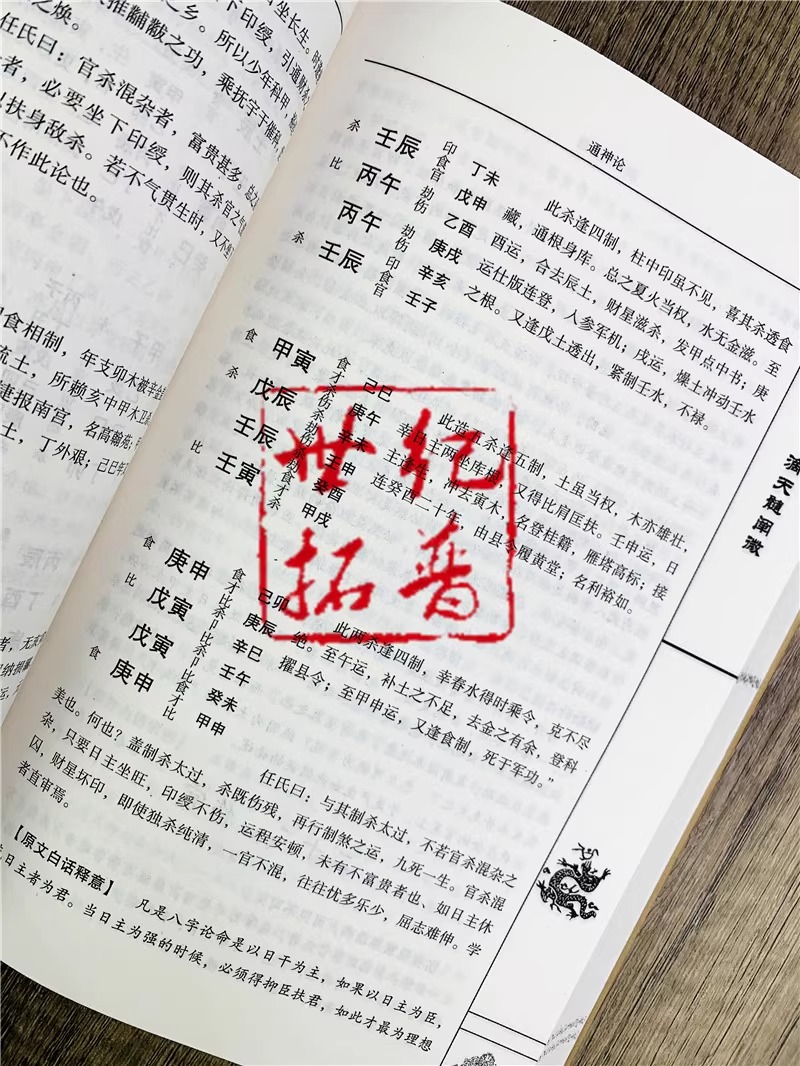 坐长生。
之乡。所以少年科甲，
推黼黻之功，乘抚字于催科
下印绶，引通财
之焕。
任氏曰：官杀混杂者，富贵甚多。总之
者，必要坐下印绶，则其杀官之气
以扶身敌杀。若不气贯生时，又不
不作此论也。
食相制，年支卯木被辛金
流土，所赖亥中甲木卫
捷报南官，名高翰苑；
土，丁外艰；己巳
通神论
杀 壬辰 印食官 丁未
比 丙午 劫伤 戊申
丙午 劫伤 乙酉
杀 壬辰 印食官 庚戌
辛亥
壬子
此杀逢四制，柱中印虽不见，喜其杀透食
藏，通根身库。总之夏火当权，水无金滋。至
酉运，合去辰土，财星滋杀，发甲点中书；庚
运仕版连登，人参军机；戌运，燥土冲动壬水
之根。又逢戊土透出，紧制壬水，不禄。
食 甲寅 食才杀 己巳
杀 戊辰 庚午
壬辰 辛未
比 壬寅 食才杀 壬申
癸酉
甲戌
此造五杀逢五制，土虽当权，木亦雄壮，
幸日主两坐库根，又得比肩匡扶。壬申运，日
主逢生，冲去寅木，名登桂籍，雁塔高标；接
连癸酉二十年，由县令履黄堂；名利裕如。
食 庚申 食才比 己卯
比 戊寅 庚辰
戊寅 辛巳
食 庚申 食才比 壬午
癸未
甲申
此两杀逢四制，幸春水得时乘令，克不尽
绝。至午运，补土之不足，去金之有余，登科
擢县令；至甲申运，又逢食制，死于军功。”
任氏曰：与其制杀太过，不若官杀混杂之
美也。何也？盖制杀太过，杀既伤残，再行制煞之运，九死一生。官杀混
杂，只要日主坐旺，印绶不伤，运程安顿，未有不富贵者也、如日主休
囚，财星坏印，即使独杀纯清，一官不混，往往忧多乐少，屈志难伸。学
者直审焉。
【原文白话释意】 凡是八字论命是以日干为主，如果以日主为臣，
日主者为君。当日主为强的时候，必须得抑臣扶君，如此才最为理想
滴天髓阐微
世纪
拓普